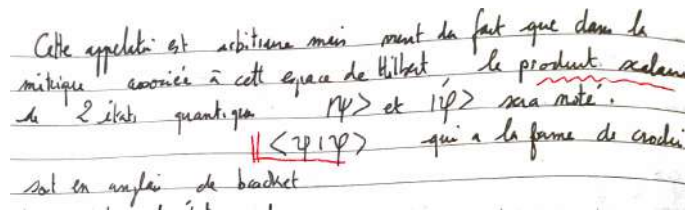 Cette appelation est arbitraire mais vient du fait que dans la
métrique associée à cett espace de Hilbert le produit scalaire
de 2 états quantique |ψ> et |φ> sera noté.
<ψ|φ> qui a la forme de crochet
soit en anglai de bracket